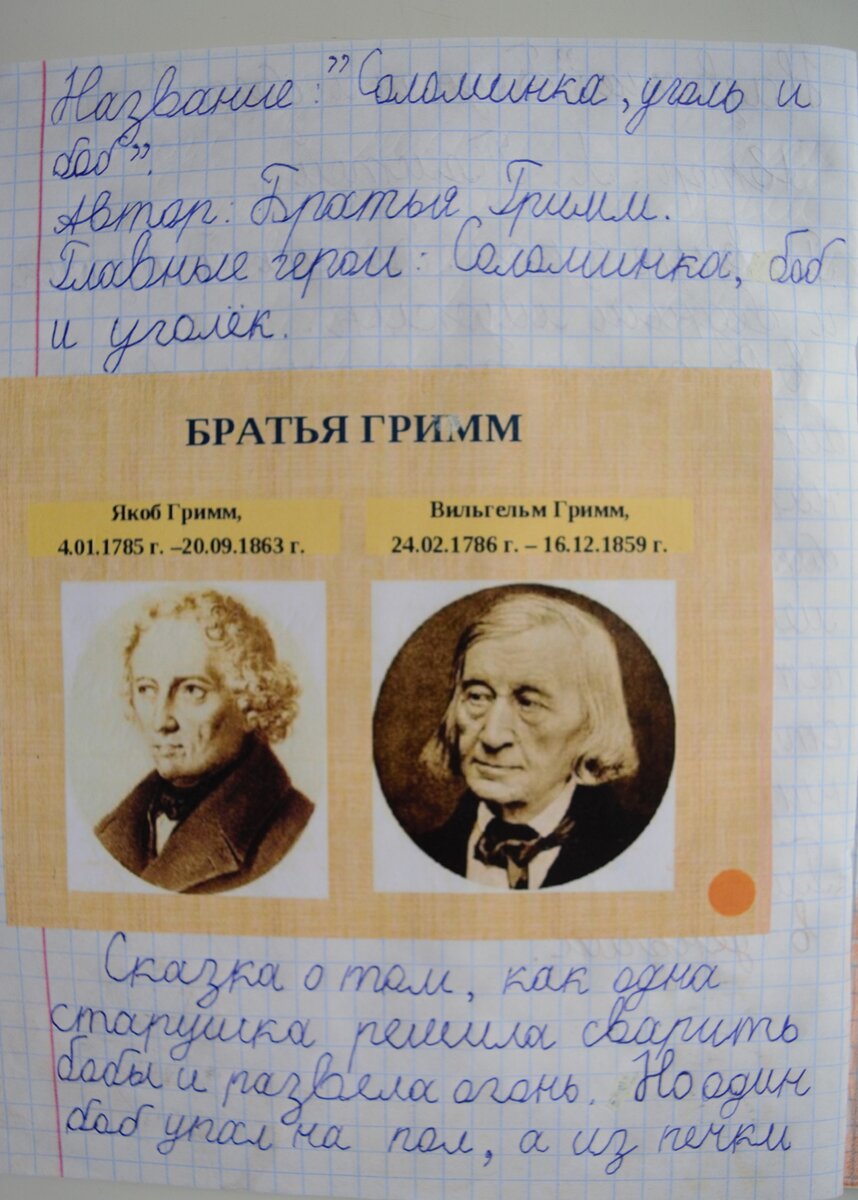 Название: "Соломинка, уголь и
боб".
Автор: Братья Гримм.
Главные герои: Соломинка, боб
и уголёк.
БРАТЬЯ ГРИММ
Якоб Гримм,
4.01.1785 г. –20.09.1863 г.
Вильгельм Гримм,
24.02.1786 г. – 16.12.1859 г.
Сказка о том, как одна
старушка решила сварить
бобы и развела огонь. Но один
боб упал на пол, а из печки